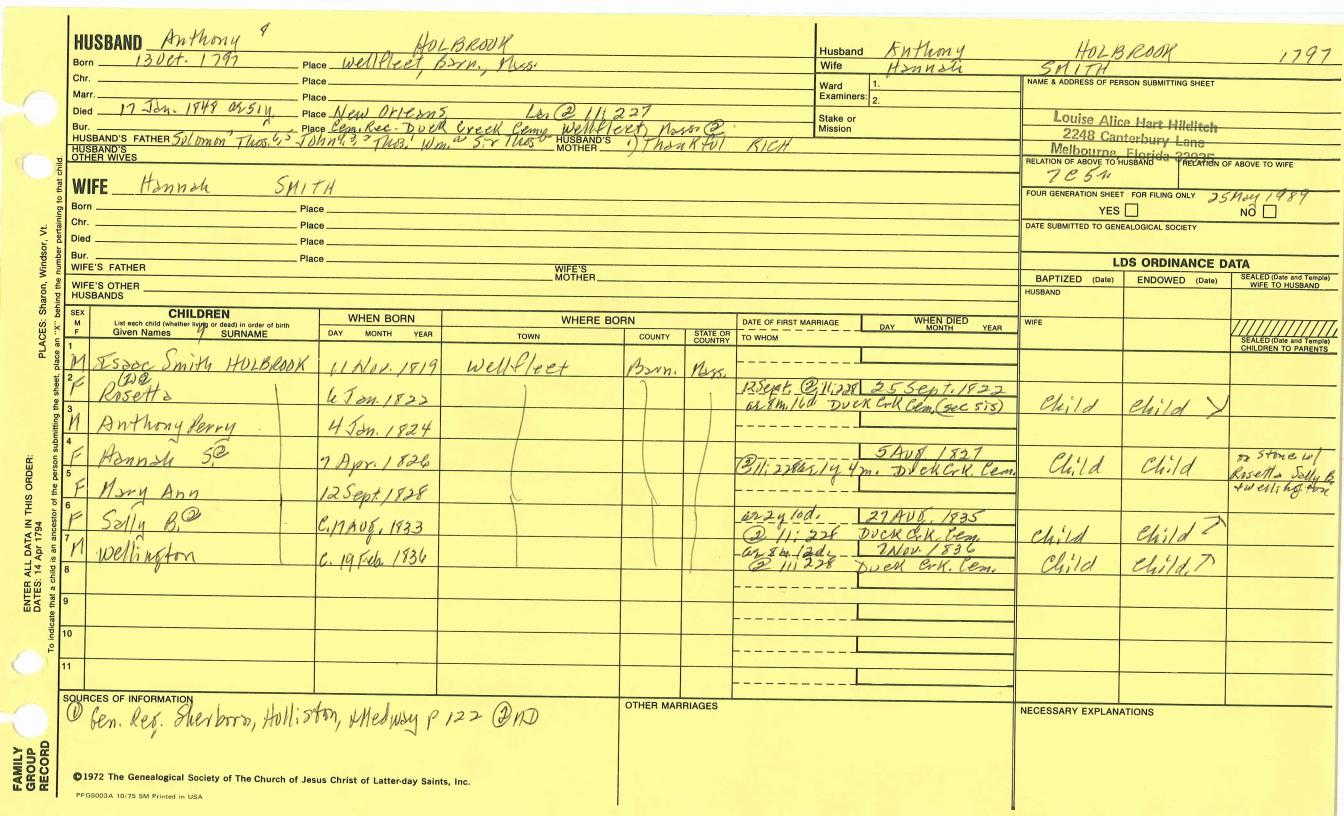 HUSBAND Anthony 8 HOLBROOK
Born 13 Oct. 1797 Place Wellfleet, Barn., Mass.
Chr. Place
Marr. Place
Died 17 Jan. 1848 Place New Orleans La. ② 11; 227
Bur. Place Cem. Rec. Duck Creek Cem., Wellfleet, Mass ②
HUSBAND'S FATHER Solomon Thos. John Thos. Wm. Sir Thos HUSBAND'S MOTHER 1) Thankful RICH
HUSBAND'S OTHER WIVES
Husband Anthony HOLBROOK 1797
Wife Hannah SMITH
Ward Examiners: 1.
2.
Stake or Mission
NAME & ADDRESS OF PERSON SUBMITTING SHEET
Louise Alice Hart Hilditch
2248 Canterbury Lane
Melbourne, Florida
RELATION OF ABOVE TO HUSBAND RELATION OF ABOVE TO WIFE
7C5R
FOUR GENERATION SHEET FOR FILING ONLY 25 May 1989
YES NO
DATE SUBMITTED TO GENEALOGICAL SOCIETY
WIFE Hannah SMITH
Born Place
Chr. Place
Died Place
Bur. Place
WIFE'S FATHER WIFE'S MOTHER
WIFE'S OTHER HUSBANDS
LDS ORDINANCE DATA
BAPTIZED (Date) ENDOWED (Date) SEALED (Date and Temple) WIFE TO HUSBAND
HUSBAND
WIFE
SEALED (Date and Temple) CHILDREN TO PARENTS
SEX M F CHILDREN WHEN BORN WHERE BORN DATE OF FIRST MARRIAGE WHEN DIED
List each child (whether living or dead) in order of birth
Given Names 9 SURNAME DAY MONTH YEAR TOWN COUNTY STATE OR COUNTRY TO WHOM DAY MONTH YEAR
1 M Isaac Smith HOLBROOK 11 Nov. 1819 Wellfleet Barn. Mass.
2 F Rosetta 6 Jan. 1822 12 Sept. ② 11; 228 25 Sept. 1822
ae 8m. 16d Duck Crk Cem. (sec 515) Child Child
3 M Anthony Perry 4 Jan. 1824
4 F Hannah S.② 7 Apr. 1826 5 Aug. 1827
② 11; 228 ae 1y 4m. Duck Crk. Cem. Child Child
on stone w/
Rosetta Sally B.
+ Wellington
5 F Mary Ann 12 Sept. 1828
6 F Sally B.② C. 17 Aug. 1833 ae 2y 10d. 27 Aug. 1835
② 11; 228 Duck Crk. Cem. Child Child
7 M Wellington C. 19 Feb. 1836 ae 8m. 12d. 7 Nov. 1836
② 11; 228 Duck Crk. Cem. Child Child
8
9
10
11
SOURCES OF INFORMATION
① Gen. Reg. Sherborn, Holliston, & Medway p 122 ② MD
OTHER MARRIAGES
NECESSARY EXPLANATIONS
©1972 The Genealogical Society of The Church of Jesus Christ of Latter-day Saints, Inc.
PFGS003A 10/75 5M Printed in USA
FAMILY GROUP RECORD
ENTER ALL DATA IN THIS ORDER:
DATES: 14 Apr 1794 PLACES: Sharon, Windsor, Vt.
To indicate that a child is an ancestor of the person submitting the sheet, place an "X" behind the number pertaining to that child.